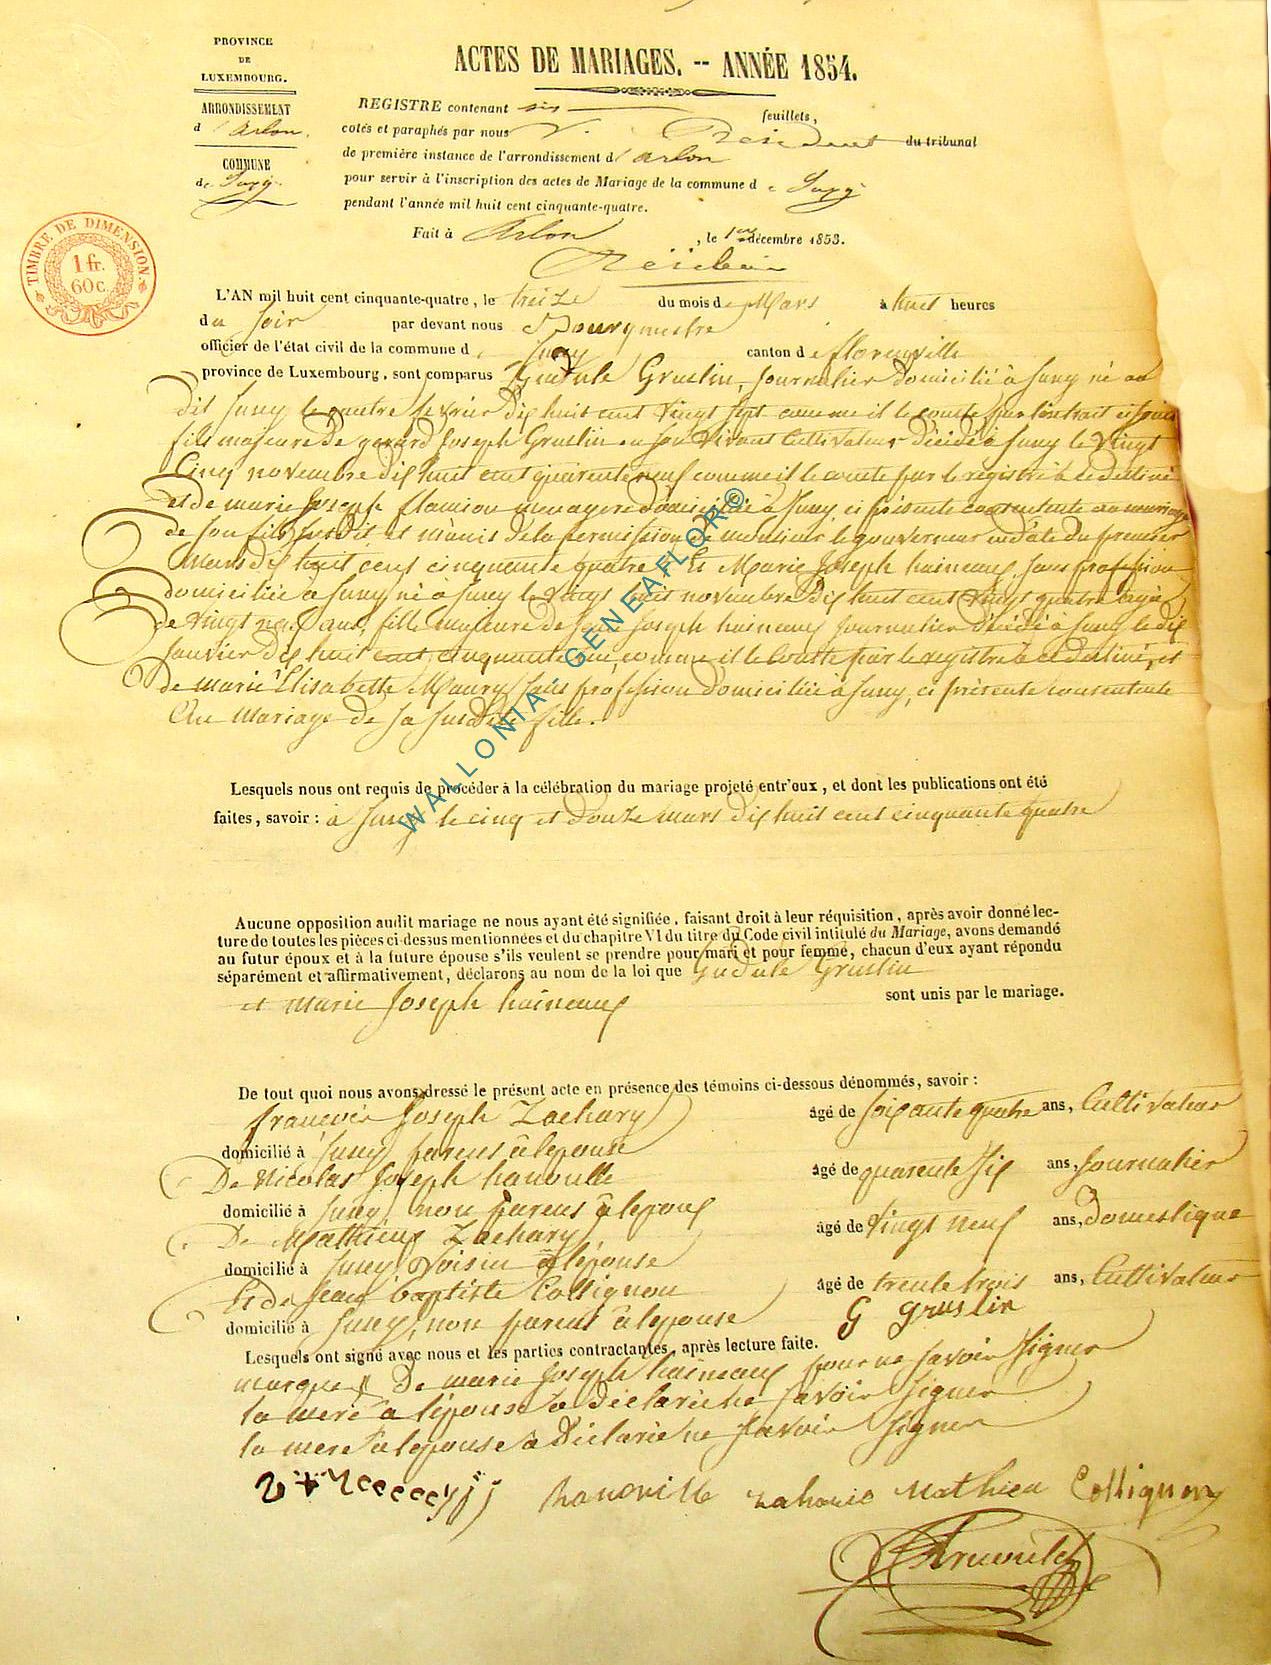 PROVINCE
DE
LUXEMBOURG.
ARRONDISSEMENT
d'Arlon.
COMMUNE
de Suxy
ACTES DE MARIAGES. -- ANNÉE 1854.
REGISTRE contenant six feuillets,
cotés et paraphés par nous V. Président du tribunal
de première instance de l'arrondissement d'Arlon
pour servir à l'inscription des actes de Mariage de la commune de Suxy
pendant l'année mil huit cent cinquante-quatre.
Fait à Arlon, le 1er décembre 1853.
TIMBRE DE DIMENSION.
1 fr.
60 c.
L'AN mil huit cent cinquante-quatre, le treize du mois de Mars à huit heures
du soir par devant nous Bourgmestre
officier de l'état civil de la commune de Suxy canton de florenville
province de Luxembourg, sont comparus Gudule Gruslin, Journalier domicilié à Suxy né au
dit Suxy le quatre fevrier dix huit cent vingt sept comme il le conste par l'extrait ci joint
fils majeure de gerard Joseph Gruslin en son vivant Cultivateur décédé à Suxy le vingt
Cinq novembre dix huit cent quarente neuf comme il le conste par le registre à ce destiné
et de marie Joseph flamion menagere domiciliée à Suxy, ci présente consentente au mariage
de son fils susdit, et munis de la permission de monsieur le gouverneur en date du premier
Mars dix huit cent cinquante quatre Et Marie Joseph haineaux, sans profession
domiciliée à Suxy né à Suxy le vingt huit novembre dix huit cent vingt quatre agée
de vingt neuf ans, fille majeure de Joseph haineaux Journalier décédé à Suxy le dix
Janvier dix huit cent cinquante comme il le conste par le registre à ce destiné, et
de marie Elisabette Maury sans profession domiciliée à Suxy, ci présente consentente
Au mariage de sa susdite fille.
Lesquels nous ont requis de procéder à la célébration du mariage projeté entr'eux, et dont les publications ont été
faites, savoir : à Suxy le cinq et douze mars dix huit cent cinquante quatre
Aucune opposition audit mariage ne nous ayant été signifiée, faisant droit à leur réquisition, après avoir donné lec-
ture de toutes les pièces ci-dessus mentionnées et du chapitre VI du titre du Code civil intitulé du Mariage, avons demandé
au futur époux et à la future épouse s'ils veulent se prendre pour mari et pour femme, chacun d'eux ayant répondu
séparément et affirmativement, déclarons au nom de la loi que Gudule Gruslin
et marie Joseph haineaux sont unis par le mariage.
De tout quoi nous avons dressé le présent acte en présence des témoins ci-dessous dénommés, savoir :
françois Joseph Zachary âgé de soixante quatre ans, Cultivateur
domicilié à Suxy parens à lepouse
De Nicolas Joseph hanouille âgé de quarente six ans, Journalier
domicilié à Suxy, non parens à lepoux
De Mathieux Zachary âgé de vingt neuf ans, domestique
domicilié à Suxy, voisin à lépouse
Et de Jean baptiste Collignon âgé de trente trois ans, Cultivateur
domicilié à Suxy, non parens à lepouse G gruslin
Lesquels ont signé avec nous et les parties contractantes, après lecture faite.
marque De marie Joseph haineaux pour ne savoir signer
la mere a lépouse à déclaré ne savoir signer
la mere à lepouse à Diclarié ne savoir signer
hanouille zaharie Mathieu Collignon
WALLONIA-GENEAFLOR©